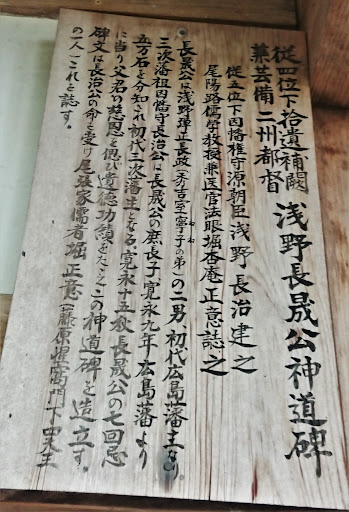 従四位下拾遺補闕
兼芸備二州都督
浅野長晟公神道碑
従五位下因幡権守源朝臣浅野長治建之
尾陽路儒学教授兼医官法眼堀杏庵正意誌之
長晟公は浅野弾正長政(秀吉室寧子の弟)の二男、初代広島藩主なり。
ねね
三次藩祖因幡守長治公は長晟公の庶長子、寛永九年広島藩より
五万石を分知され初代三次藩主となる、寛永十五秋長晟公の七回忌
に当り父君の慈恩を偲び遺徳功績をたたえこの神道碑を造立す。
碑文は長治公の命を受け尾張家儒者堀正意(藤原惺窩門下四天王
の一人)これを誌す。